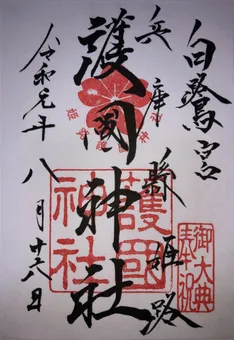 白鷺宮
兵庫縣姫路
護國神社
令和元年八月十六日
護國神社
御大典奉祝